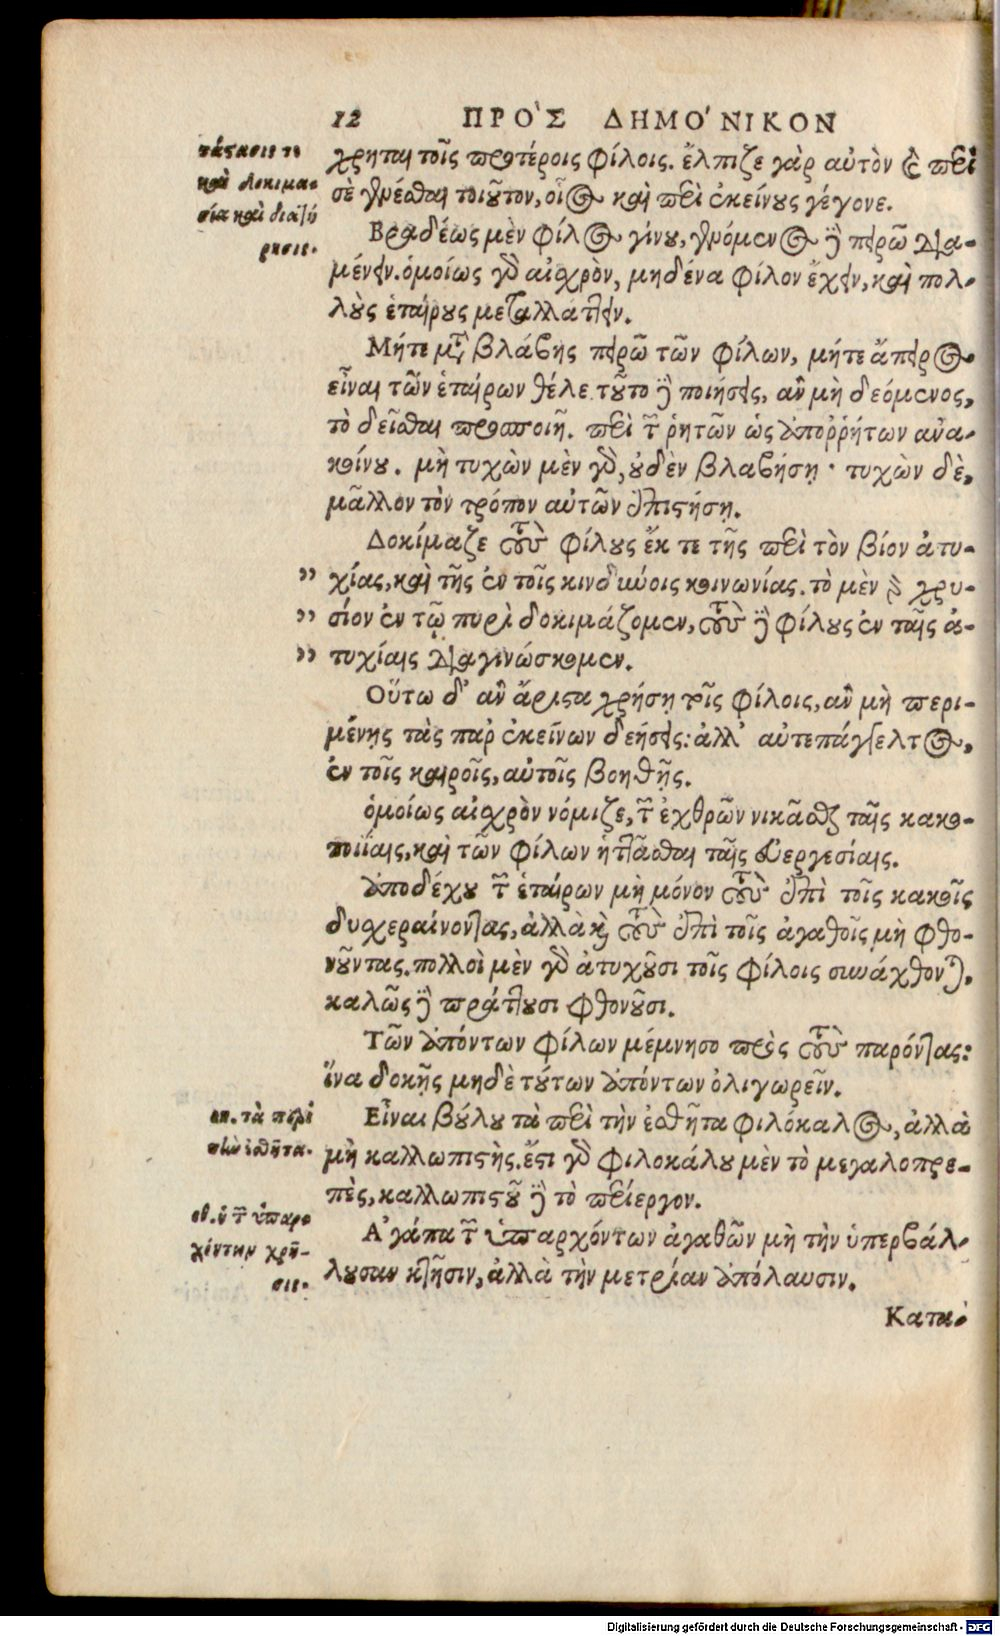 12 ΠΡΟ`Σ ΔΗΜΟ´ΝΙΚΟΝ
τάστασίς τε
καὶ δοκιμα-
σία καὶ διατή
ρησις.
χρηται τοῖς προτέροις φίλοις. ἔλπιζε γὰρ αὐτὸν καὶ περὶ
σὲ γενέσθαι τοιοῦτον, οἷος καὶ περὶ ἐκείνους γέγονε.
Βραδέως μὲν φίλος γίνου, γενόμενος δὲ πειρῶ δια-
μένειν. ὁμοίως γὰρ αἰσχρὸν, μηδένα φίλον ἔχειν, καὶ πολ-
λοὺς ἑταίρους μεταλλάττειν.
Μήτε μετὰ βλάβης πειρῶ τῶν φίλων, μήτε ἄπειρος
εἶναι τῶν ἑταίρων θέλε. τοῦτο δὲ ποιήσεις, ἂν μὴ δεόμενος,
τὸ δεῖσθαι προσποιῇ. περὶ τῶν ῥητῶν ὡς ἀποῤῥήτων ἀνα-
κοίνου. μὴ τυχὼν μὲν γὰρ, οὐδὲν βλαβήσῃ· τυχὼν δὲ,
μᾶλλον τὸν τρόπον αὐτῶν ἐπιστήσῃ.
Δοκίμαζε τοὺς φίλους ἔκ τε τῆς περὶ τὸν βίον ἀτυ-
” χίας, καὶ τῆς ἐν τοῖς κινδύνοις κοινωνίας. τὸ μὲν γὰρ χρυ-
” σίον ἐν τῷ πυρὶ δοκιμάζομεν, τοὺς δὲ φίλους ἐν ταῖς ἀ-
” τυχίαις διαγινώσκομεν.
Οὕτω δ’ ἂν ἄριστα χρήσῃ τοῖς φίλοις, ἂν μὴ περι-
μένῃς τὰς παρ ἐκείνων δεήσεις: ἀλλ’ αὐτεπάγγελτος,
ἐν τοῖς καιροῖς, αὐτοῖς βοηθῇς.
ὁμοίως αἰσχρὸν νόμιζε, τῶν ἐχθρῶν νικᾶσθαι ταῖς κακο-
ποιΐαις, καὶ τῶν φίλων ἡττᾶσθαι ταῖς εὐεργεσίαις.
ἀποδέχου τῶν ἑταίρων μὴ μόνον τοὺς ἐπὶ τοῖς κακοῖς
δυχεραίνοντας, ἀλλὰ καὶ τοὺς ἐπὶ τοῖς ἀγαθοῖς μὴ φθο-
νοῦντας. πολλοὶ μὲν γὰρ ἀτυχοῦσι τοῖς φίλοις συνάχθονται,
καλῶς δὲ πράττουσι φθονοῦσι.
Τῶν ἀπόντων φίλων μέμνησο πρὸς τοὺς παρόντας:
ἵνα δοκῇς μηδὲ τούτων ἀπόντων ὀλιγωρεῖν.
τὰ περὶ
τὴν ἐσθῆτα.
Εἶναι βούλου τὰ περὶ τὴν ἐσθῆτα φιλόκαλος, ἀλλὰ
μὴ καλλωπιστής. ἔστι γὰρ φιλοκάλου μὲν τὸ μεγαλοπρε-
πὲς, καλλωπιστοῦ δὲ τὸ περίεργον.
ἡ τῶν ὑπαρ-
χόντων χρῆ-
σις.
Α’γάπα τῶν ὑπαρχόντων ἀγαθῶν μὴ τὴν ὑπερβάλ-
λουσαν κτῆσιν, ἀλλὰ τὴν μετρίαν ἀπόλαυσιν.
Κατα-
Digitalisierung gefördert durch die Deutsche Forschungsgemeinschaft - DFG